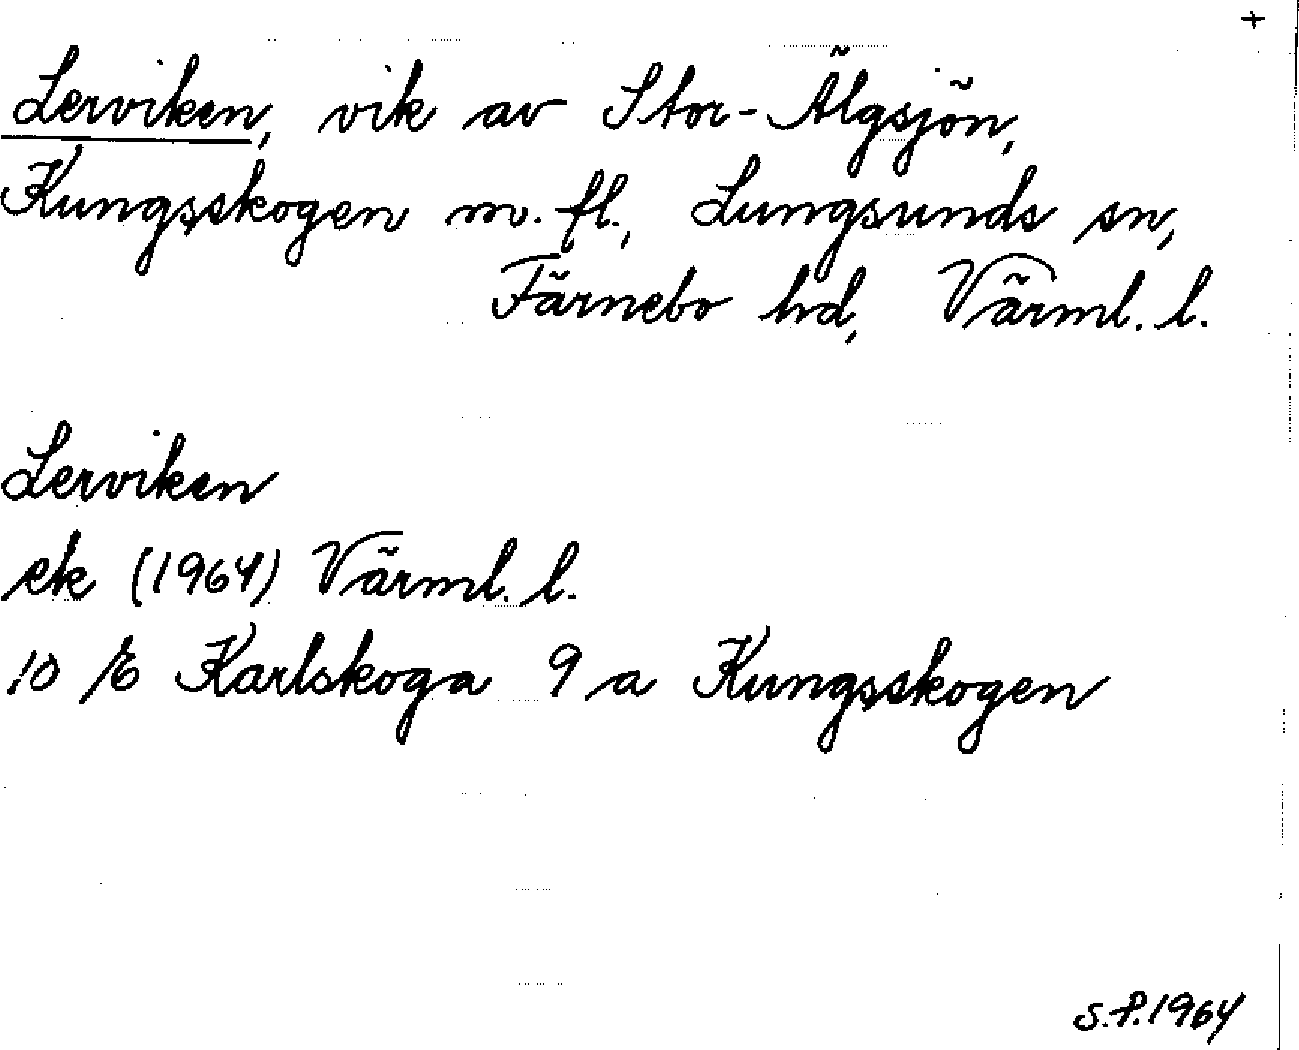 +
Lerviken, vik av Stor-Älgsjön,
Kungsskogen m. fl., Lungsunds sn,
Färnebo hd, Värml. l.
Lerviken
ek (1964) Värml. l.
10 E Karlskoga 9 a Kungsskogen
S.P. 1964